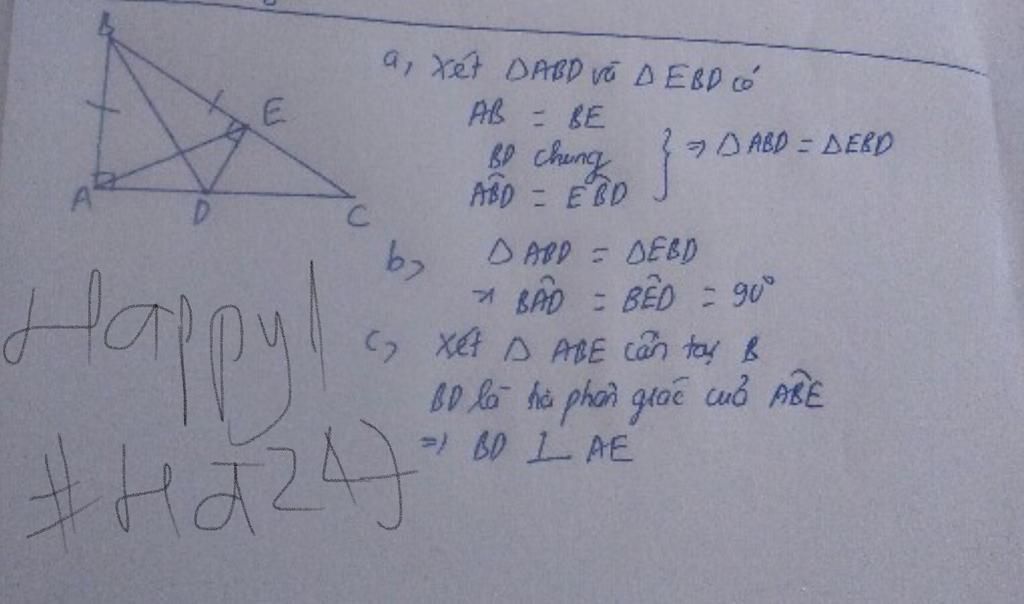 B
E
A
D
C
a, Xét ΔABD và ΔEBD có
AB = BE
BD chung
AB̂D = EB̂D
} => ΔABD = ΔEBD
b, ΔABD = ΔEBD
=> BÂD = BÊD = 90°
c, Xét Δ ABE cân tại B
BD là tia phân giác của AB̂E
=> BD ⊥ AE
Happy!